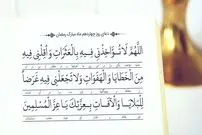 دعای روز چهاردهم ماه مبارک رمضان
اللّهُمَّ لا تُؤاخِذْنی فیهِ بِالْعَثَراتِ وَ أَقِلْنی فیهِ
مِنَ الْخَطایا وَ الْهَفَواتِ وَ لا تَجْعَلْنی فیهِ غَرَضاً
لِلْبَلایا وَ الْآفاتِ بِعِزَّتِکَ یا عِزَّ الْمُسْلِمینَ